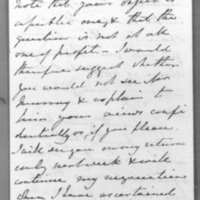 note that your object is
a public one, & that the
question is not at all
one of profit — I would
therefore suggest whether
you would not see Mr
& explain to
him your views confi
dentially or, if you please,
I will see you on my return
early next week & will
continue my negociation
I have ascertained